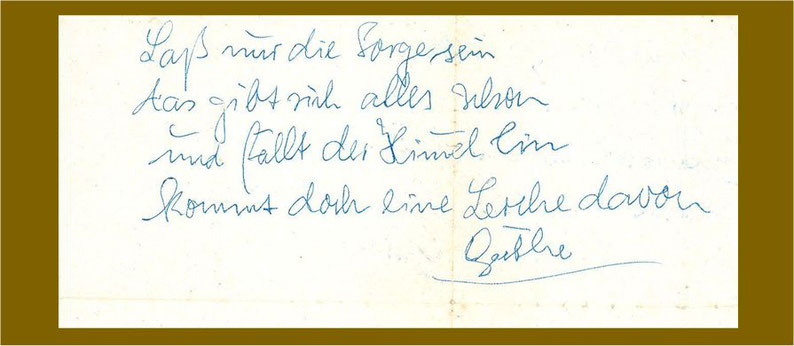 Laß nur die Sorge sein
das gibt sich alles schon
und fällt der Himmel ein
kommt doch eine Lerche davon
Goethe